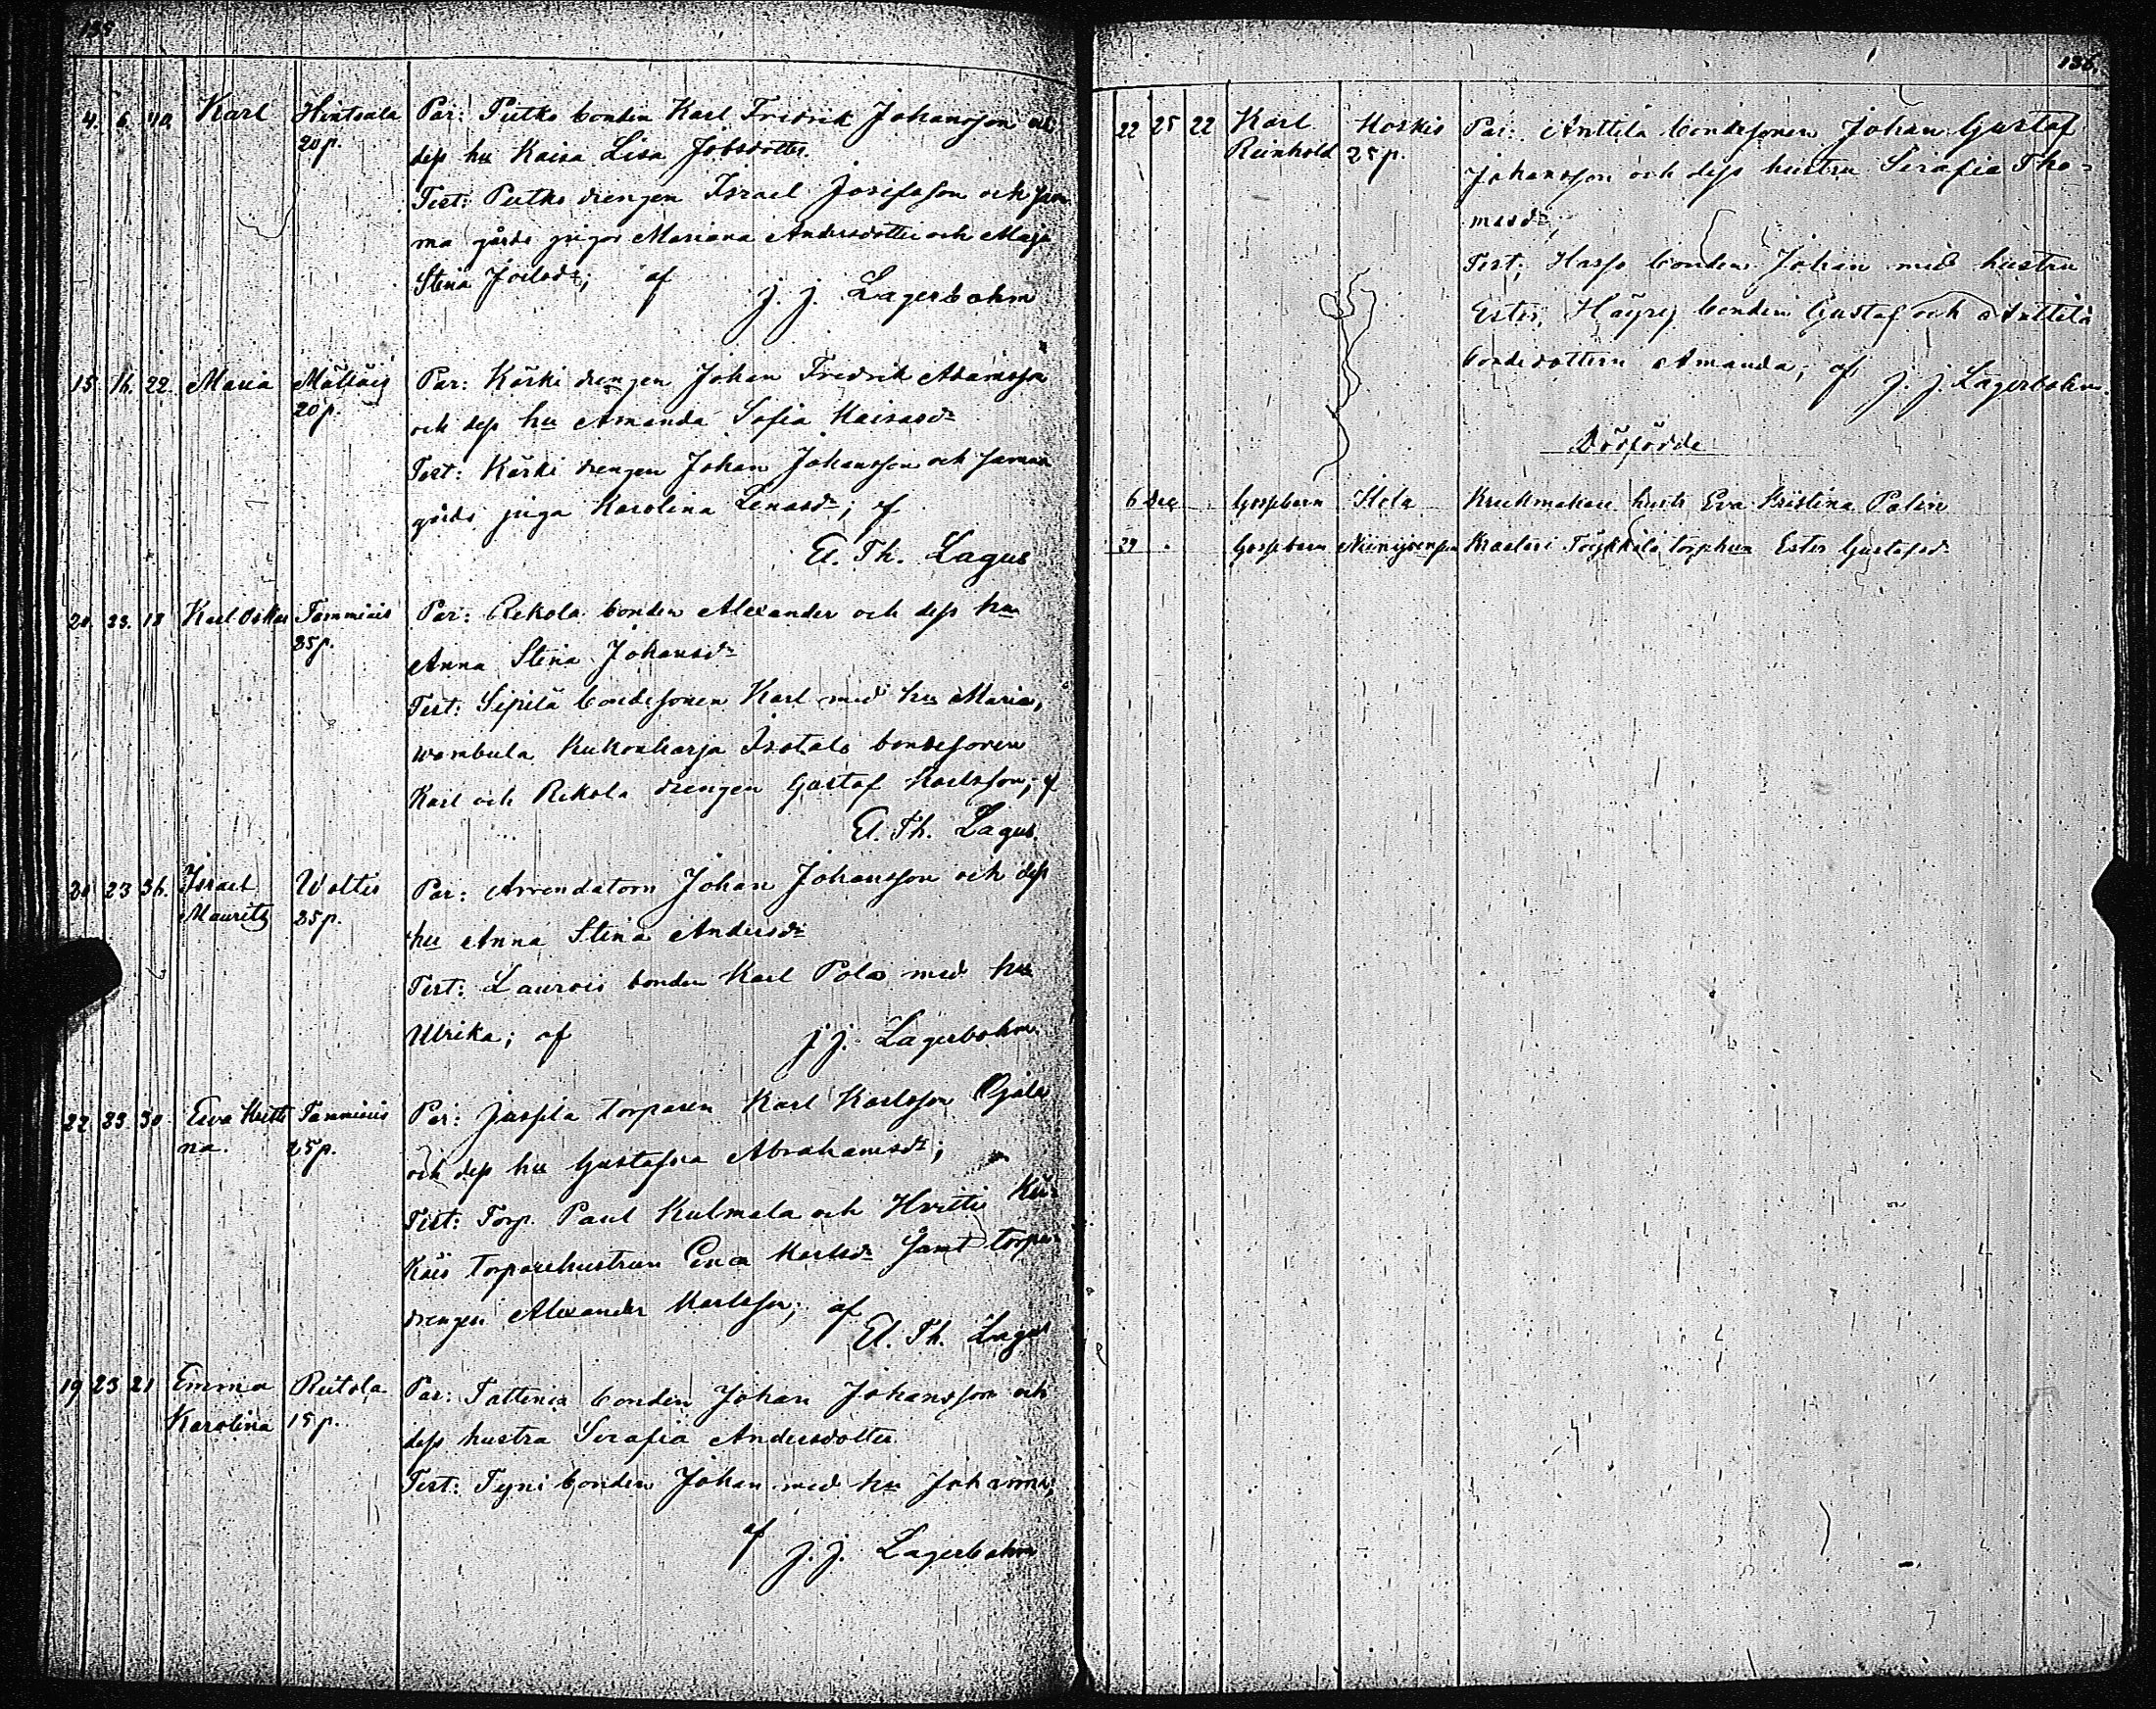 135
4. 6. 40. Karl Hintsala Par: Putko bonden Karl Fridrik Johansson och
20 p. dess hu Kaisa Lisa Jobsdotter.
Test: Putko drengen Israel Josefsson och sam-
ma gårds pigor Mariana Andersdotter och Maja
Stina Joelsdr; af J. J. Lagerbohm
15. 16. 22. Maria Mältäis Par: Käski drengen Johan Fredrik Adamsson
20 p. och dess hu Amanda Sofia Kaisasdr
Test: Käski drengen Johan Johansson och samma
gårds piga Karolina Lenasdr; af
El. Th. Lagus
20. 23. 18 Karl Oskar Tammiais Par: Rekola bonden Alexander och dess hu
25 p. Anna Stina Johansdr
Test: Sipilä bondesonen Karl med hu Maria,
Wambula Kukonharja Isotalo bondesonen
Karl och Rekola drengen Gustaf Karlsson; af
El. Th. Lagus.
20 23 36. Israel Woltis Par: Arrendatorn Johan Johansson och dess
Mauritz 25 p. hu Anna Stina Andersdr
Test: Laurois bonden Karl Pola med hu
Ulrika; af J. J. Lagerbohm.
22 23 30 Eva Kristi- Tammiais Par: Jussila torparen Karl Karlsson Ojala
na. 25 p. och dess hu Gustafva Abrahamsdr;
Test: Torp. Paul Kulmala och Hvittis
torparehustrun Eva Karlsdr samt torpar-
drengen Alexander Karlsson; af
El. Th. Lagus
19 23 21 Emma Reitola Par: Tattenis bonden Johan Johansson och
Karolina 15 p. dess hustru Serafia Andersdotter
Test: Tyni bonden Johan med hu Johanna;
af J. J. Lagerbohm
136.
22 25 22 Karl Koskis Par: Anttila bondesonen Johan Gustaf
Reinhold 25 p. Johansson och dess hustru Serafia Tho-
masdr;
Test; Hasso bonden Johan med hustru
Ester, Häyry bonden Gustaf och Anttila
bondedottern Amanda; af J. J. Lagerbohm.
Dödfödde
6 Dec Gossebarn Kola Krukmakare hustr Eva Kristina Palin
29 . Gossebarn Torphun Ester Gustafsdr